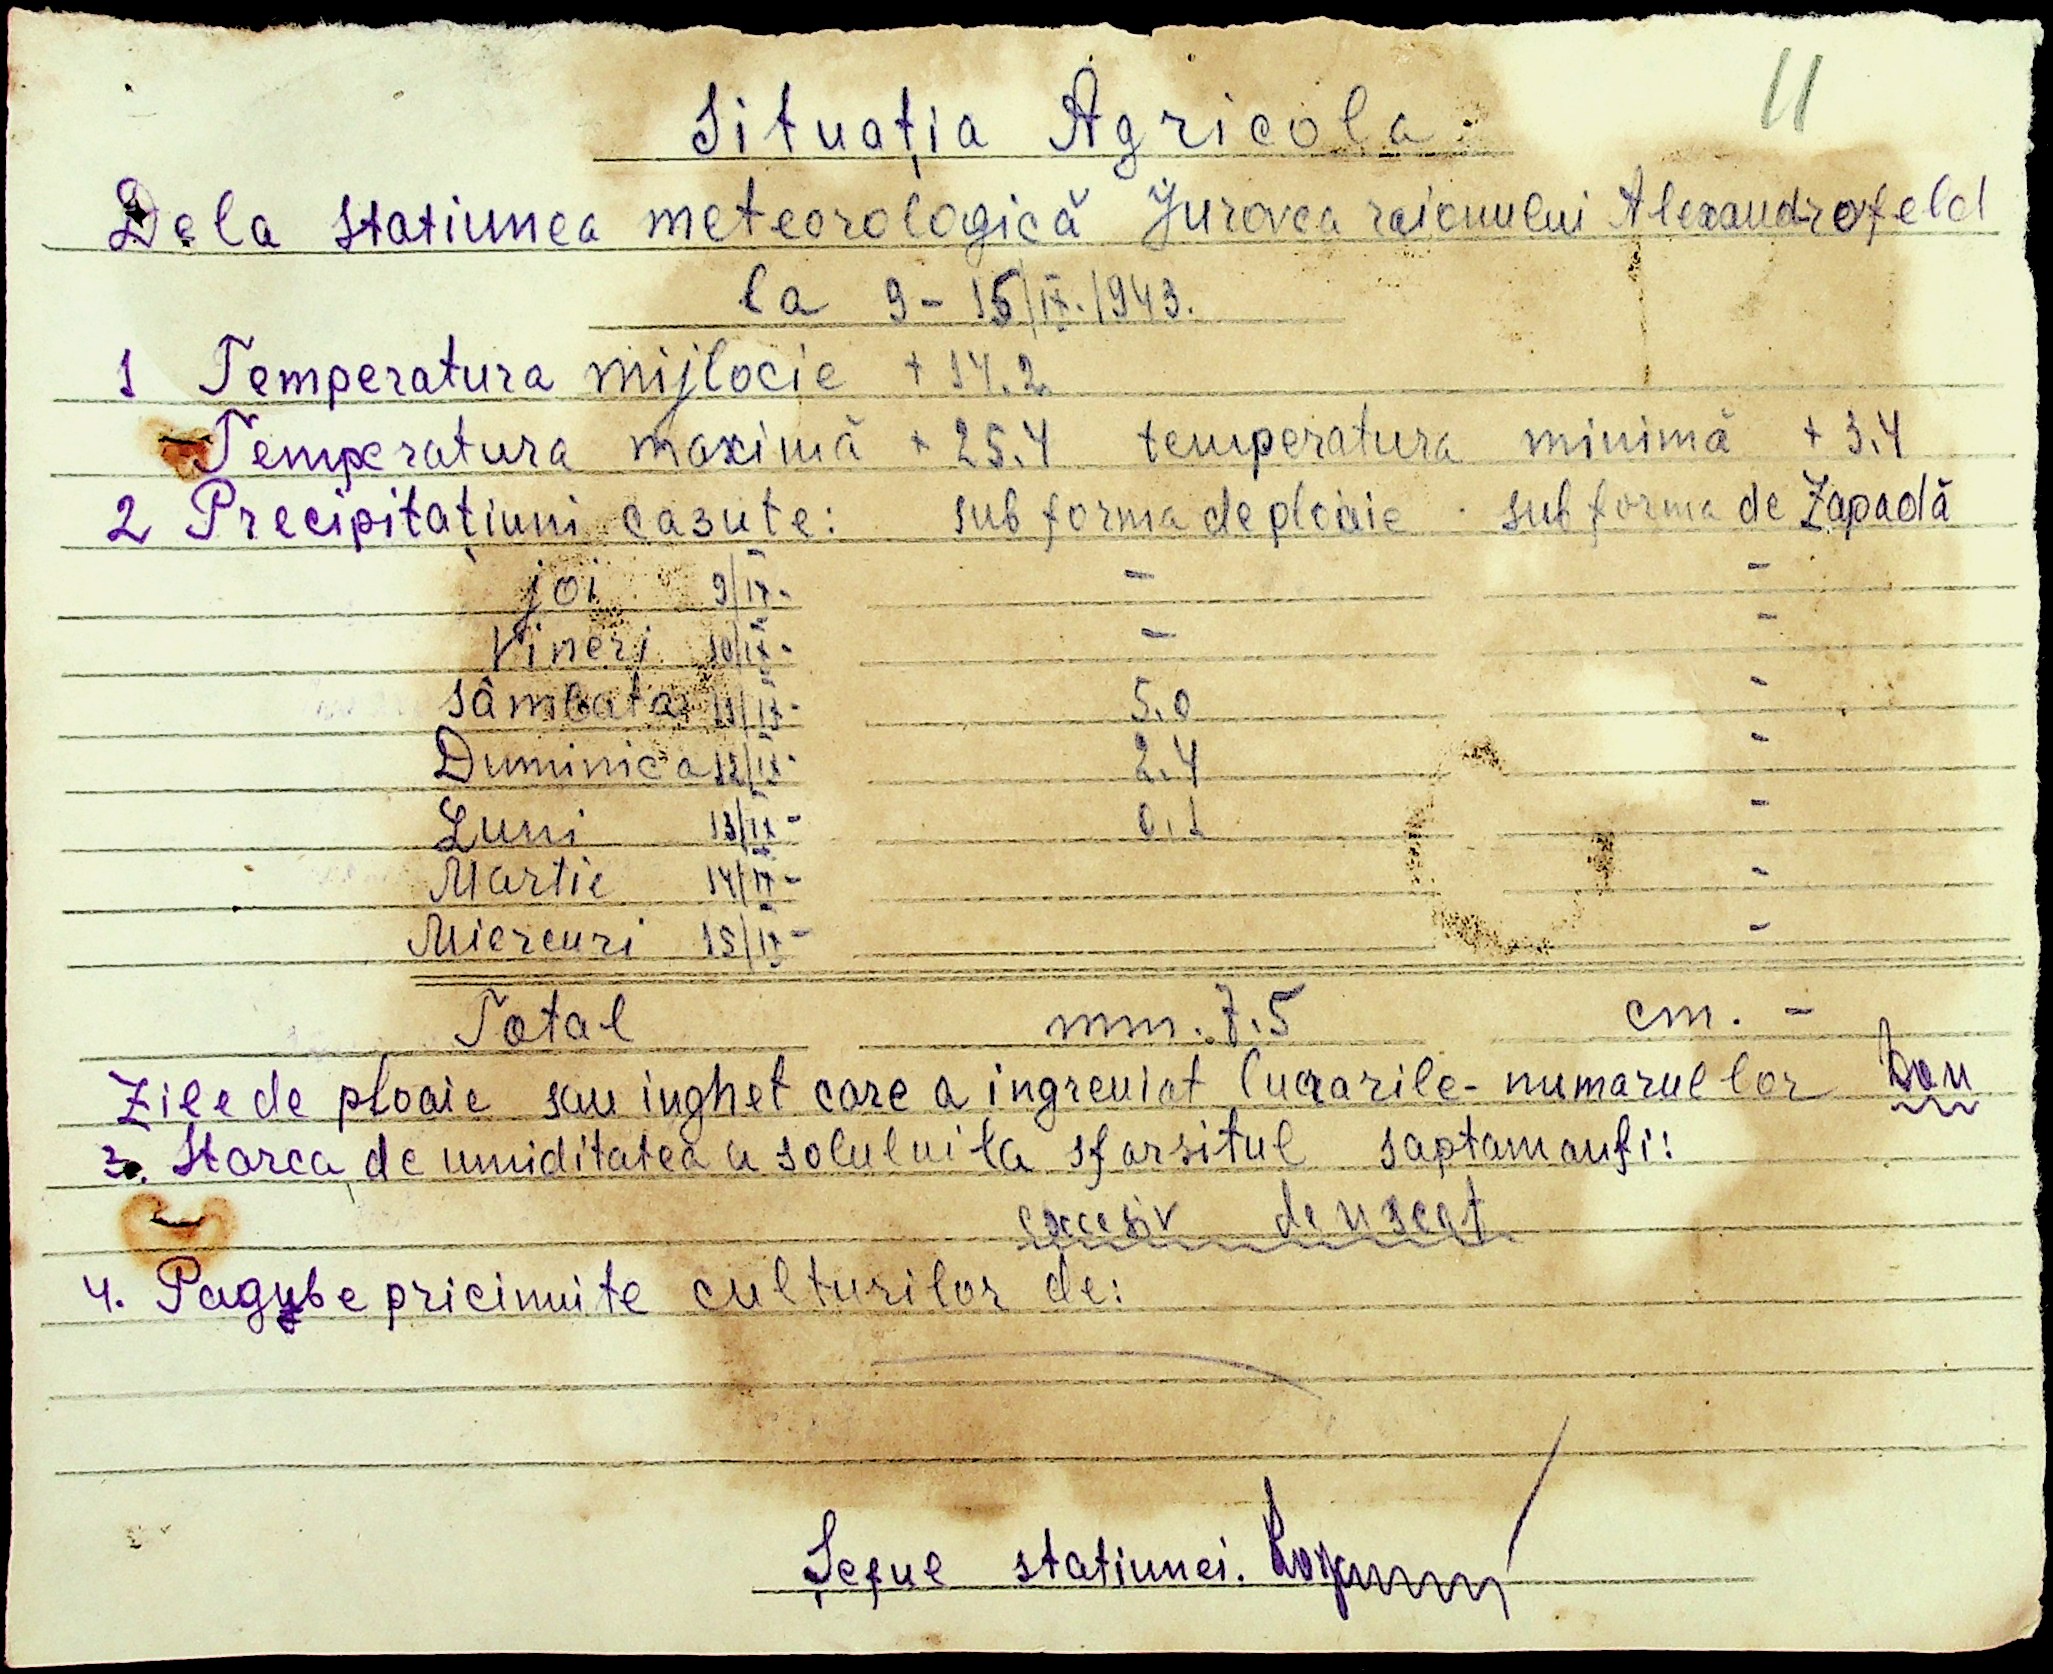 11
Situația Agricola.
Dela statiunea meteorologică Jurovca raionului Alexandrofeld
la 9-15/IX.1943.
1 Temperatura mijlocie +14.2
Temperatura maximă +25.4 temperatura minimă +3.4
2 Precipitațiuni cazute: sub forma de ploaie . sub forma de Zapadă
joi 9/IX- - -
Vineri 10/IX- - -
Sâmbata 11/IX- 5.0 -
Duminica 12/IX- 2.4 -
Luni 13/IX- 0.1 -
Martie 14/IX- -
Miercuri 15/IX- -
Total mm. 7.5 cm. -
Zile de ploaie sau inghet care a ingreuiat lucrarile-numarul lor
3. Starea de umiditatea a solului la sfarsitul saptamanii:
excesiv de uscat
4. Pagube pricinuite culturilor de:
Șeful statiunei.